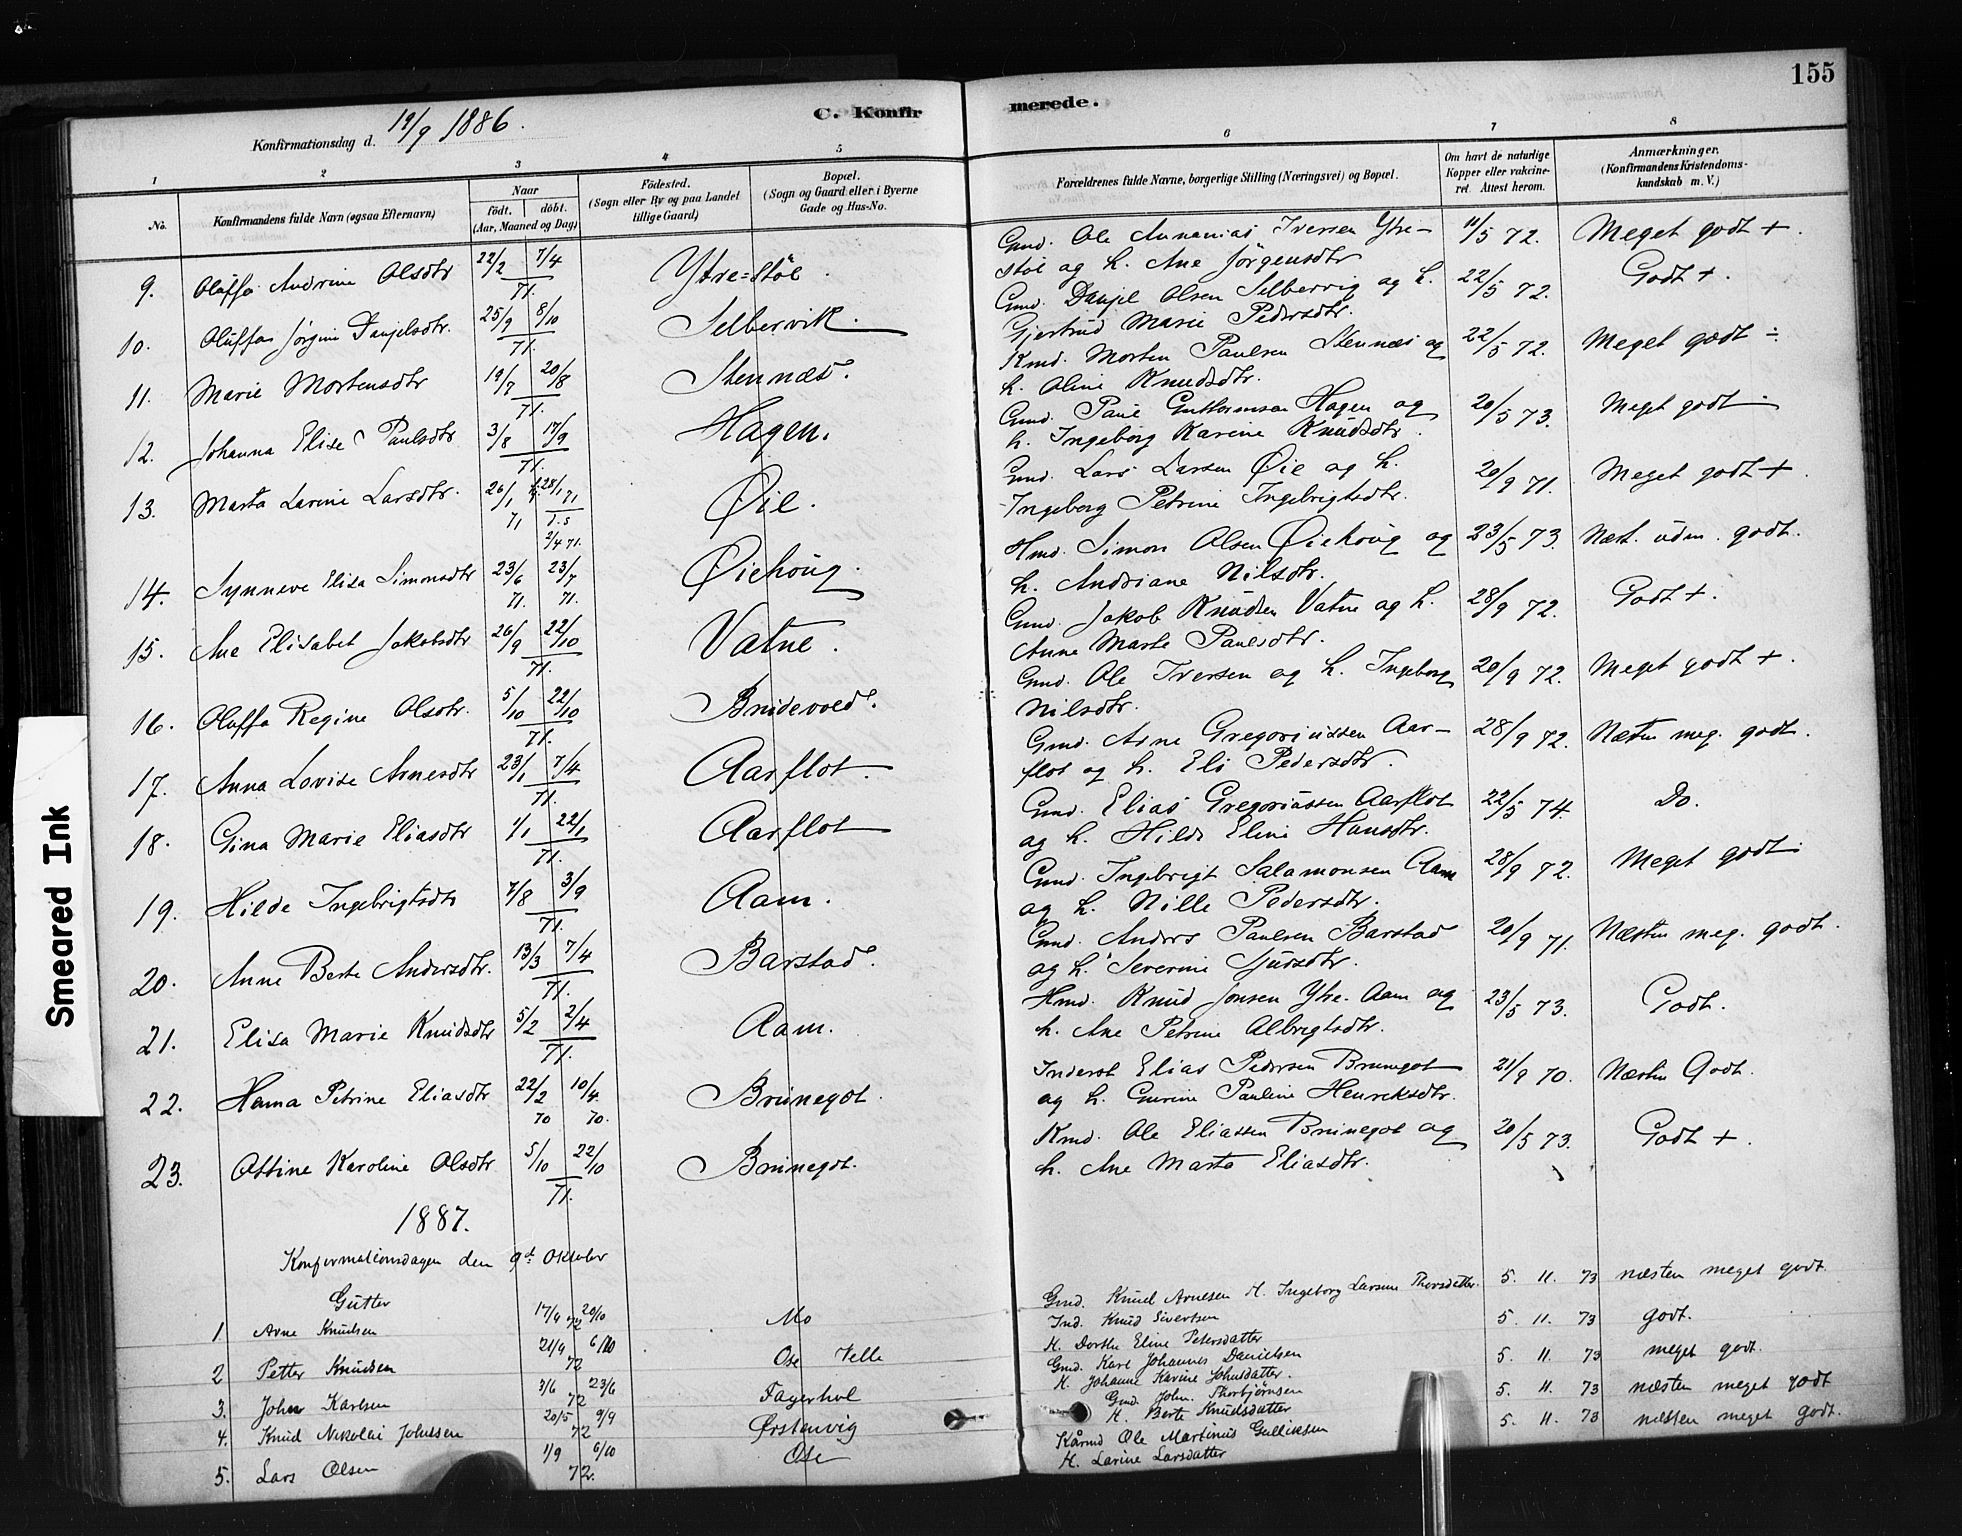 155
C. Konfirmerede.
Konfirmationsdag d. 19/9 1886.
1 2 3 4 5 6 7 8
No. Konfirmandens fulde Navn (ogsaa Efternavn) Naar født. døbt. (Aar, Maaned og Dag) Fødested. (Sogn eller By og paa Landet tillige Gaard) Bopæl. (Sogn og Gaard eller i Byerne Gade og Hus-No. Forældrenes fulde Navne, borgerlige Stilling (Næringsvei) og Bopæl. Om havt de naturlige Kopper eller vakcineret. Attest herom. Anmærkninger. (Konfirmandens Kristendomskundskab m. V.)
9. Oluffa Andrine Olsdtr 22/2 7/4 71. Ytre=støl. Gmd. Ole Ananias Iversen Ytre-
støl og h. Ane Jörgensdtr 11/5 72. Meget godt +.
10. Oluffa Jørgine Danjelsdtr. 25/9 8/10 71. Selbervik. Gmd. Danjel Olsen Selbervig og h.
Gjertrud Marie Pedersdtr. 22/5 72. Godt +.
11. Marie Mortensdtr 19/7 20/8 71. Stennæs. Kmd. Morten Paulsen Stennæs og
h. Oline Knudsdtr. 22/5 72. Meget godt ÷
12. Johanna Elise Paulsdtr 3/8 17/9 71. Hagen. Gmd. Paul Guttormsen Hagen og
h. Ingeborg Karine Knudsdtr. 20/5 73. Meget godt
13. Marta Larine Larsdtr. 26/1 71 28/1 71 2/4 71. Øie. Gmd. Lars Larsen Øie og h.
Ingeborg Petrine Ingebrigtsdtr. 20/9 71. Meget godt +
14. Synneve Elisa Simonsdtr 23/6 71. 23/7 71. Øiehoug. Hmd. Simon Olsen Øiehoug og
h. Andriane Nilsdtr. 23/5 73. Næst. udm. godt.
15. Ane Elisabet Jakobsdtr 26/9 22/10 71. Vatne. Gmd. Jakob Knudsen Vatne og h.
Anne Marte Paulsdtr. 28/9 72. Godt +.
16. Oluffa Regine Olsdtr. 5/10 22/10 71. Gmd. Ole Iversen og h. Ingeborg
Nilsdtr. 20/9 72. Meget godt +.
17. Anna Lovise Arnesdtr 23/1 7/4 71. Aarflot. Gmd. Arne Gregoriussen Aar-
flot og h. Eli Pedersdtr. 28/9 72. Næsten meg. godt.
18. Gina Marie Eliasdtr 1/1 22/1 71. Aarflot Gmd. Elias Gregoriussen Aarflot
og h. Hilde Eline Hansdtr. 22/5 74. Do.
19. Hilde Ingebrigtsdtr 7/8 3/9 71. Aam. Gmd. Ingebrigt Salamonsen Aam
og h. Nille Pedersdtr. 28/9 72. Meget godt.
20. Anne Berte Andersdtr. 13/3 7/4 71. Barstad. Gmd. Anders Paulsen Barstad
og h. Severine Sjursdtr. 20/9 71. Næsten meg. godt.
21. Elisa Marie Knudsdtr 5/2 2/4 71. Aam. Hmd. Knud Jonsen Ytre-Aam og
h. Ane Petrine Albrigtsdtr. 23/5 73. Godt.
22. Hanna Petrine Eliasdtr 22/2 70 10/4 70. Brünegot. Inderst Elias Pedersen Brunegot
og h. Gurine Pauline Henriksdtr. 21/9 70. Næsten Godt.
23. Ottine Karoline Olsdtr 5/10 22/10 71. Brünegot. Kmd. Ole Eliassen Brunegot og
h. Ane Marta Eliasdtr. 20/5 73. Godt +.
1887.
Konfirmationsdagen den 9d. Oktober
Gutter
1 Arne Knudsen 17/9 20/10 72 Mo Gmd. Knud Arnesen H. Ingeborg Larsine Thorsdatter 5. 11. 73 næsten meget godt.
2 Petter Knudsen 21/9 6/10 72 Ose Velle Ind. Knud Sivertsen
H. Dorthe Eline Petersdatter 5. 11. 73 godt.
3. John Karlsen 3/6 23/6 72 Fagerhol Gmd. Karl Johannes Danielsen
H. Johanne Karine Johnsdatter. 5. 11. 73 meget godt.
4. Knud Nikolai Johnsen 20/5 9/9 72 Ørstenvig Gmd. John Thorbjørnsen
H. Berte Knudsdatter 5. 11. 73 næsten meget godt
5. Lars Olsen 1/9 6/10 72. Ose Kårmd Ole Martinus Gulliksen
H. Larine Larsdatter 5. 11. 73 næsten meget godt.
Smeared Ink